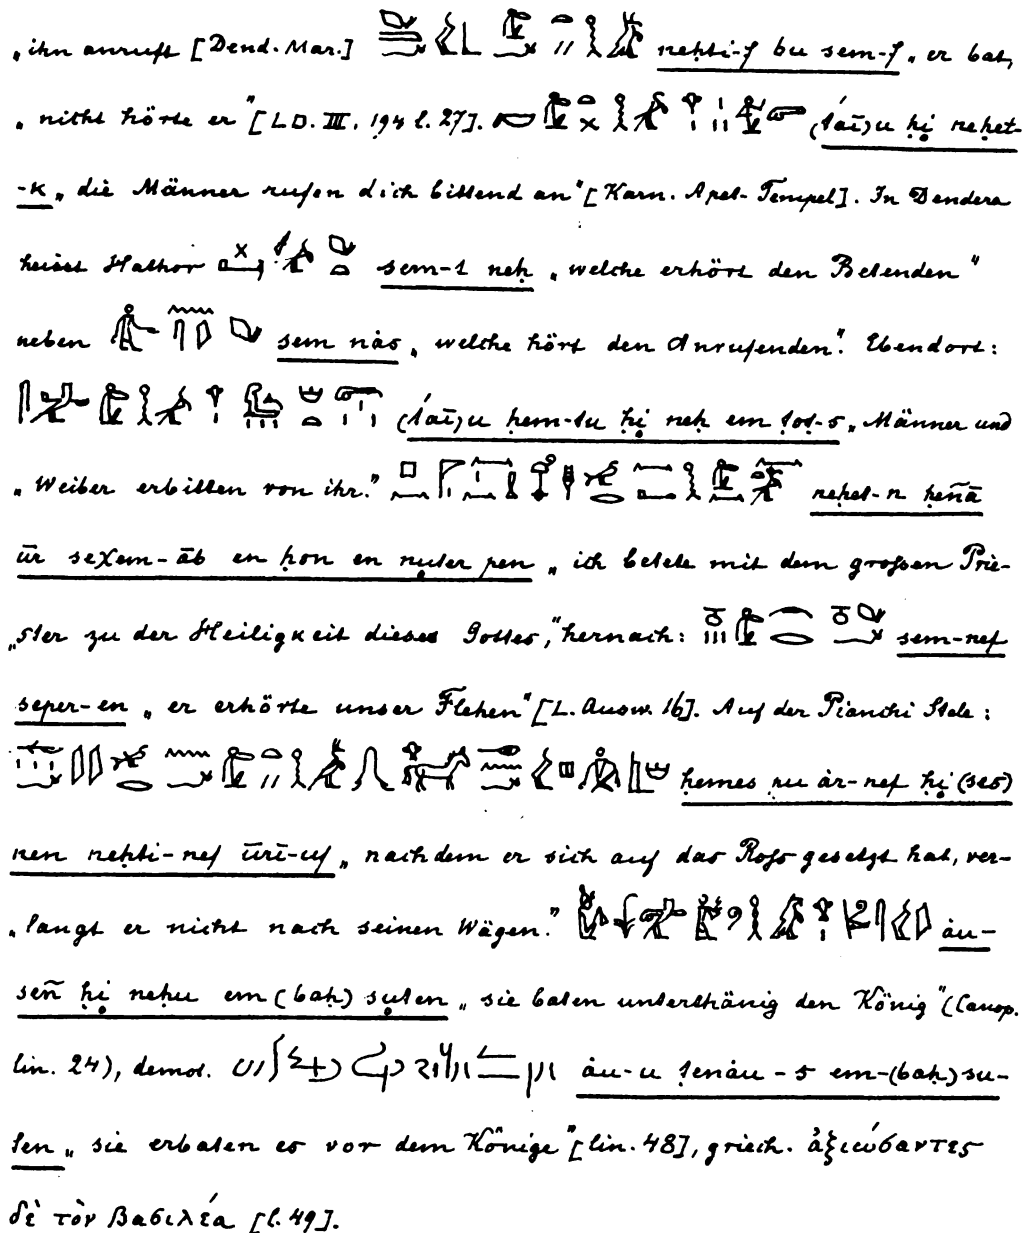 „ihn anruft [Dend. Mar.] neḥti-f bu sem-f „er bat,
„nicht hörte er" [LD. III. 194 l. 27]. (śāt)u ḥi neḥet-
-k „die Männer rufen dich bittend an" [Karn. Apet-Tempel]. In Dendera
heisst Hathor sem-t neḥ „welche erhört den Betenden"
neben sem nås „welche hört den Anrufenden". Ebendort:
u ḥem-tu ḥi neḥ em ṭoṭ-s „Männer und
„Weiber erbitten von ihr." neḥet-n ḥeñā
ūr seχem-āb en ḥon en nuter pen „ich betete mit dem großen Prie-
„ster zu der Heiligkeit dieses Gottes," hernach: sem-nef
seper-en „er erhörte unser Flehen" [L. Ausw. 16]. Auf der Pianchi Stele:
ḥemes ru år-nef ḥi (ses)
nen neḥti-nef ūrī-uf „nachdem er sich auf das Roß gesetzt hat, ver-
„langt er nicht nach seinen Wägen." åu-
señ ḥi neḥu em (baḥ) suten „sie baten unterthänig den König" (Canop.
lin. 24), demot. åu-u ṭenåu-s em-(baḥ) su-
ten „sie erbaten es vor dem Könige" [lin. 48], griech. ἀξιώσαντες
δὲ τὸν βασιλέα [l. 49].